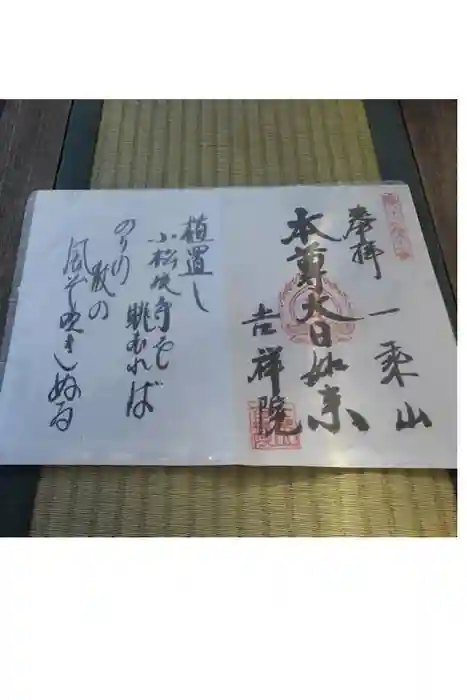 奉拝
一乗山
本尊大日如来
吉祥院
植置し
小松後寺を
眺むれば
のりの教の
風ぞ吹きしぬる